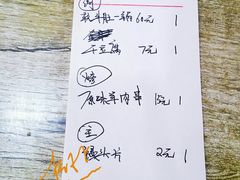 牛肚一锅 60元 1
干豆腐 7元 1
烤
原味羊肉串 15元 1
主
馒头片 2元 1